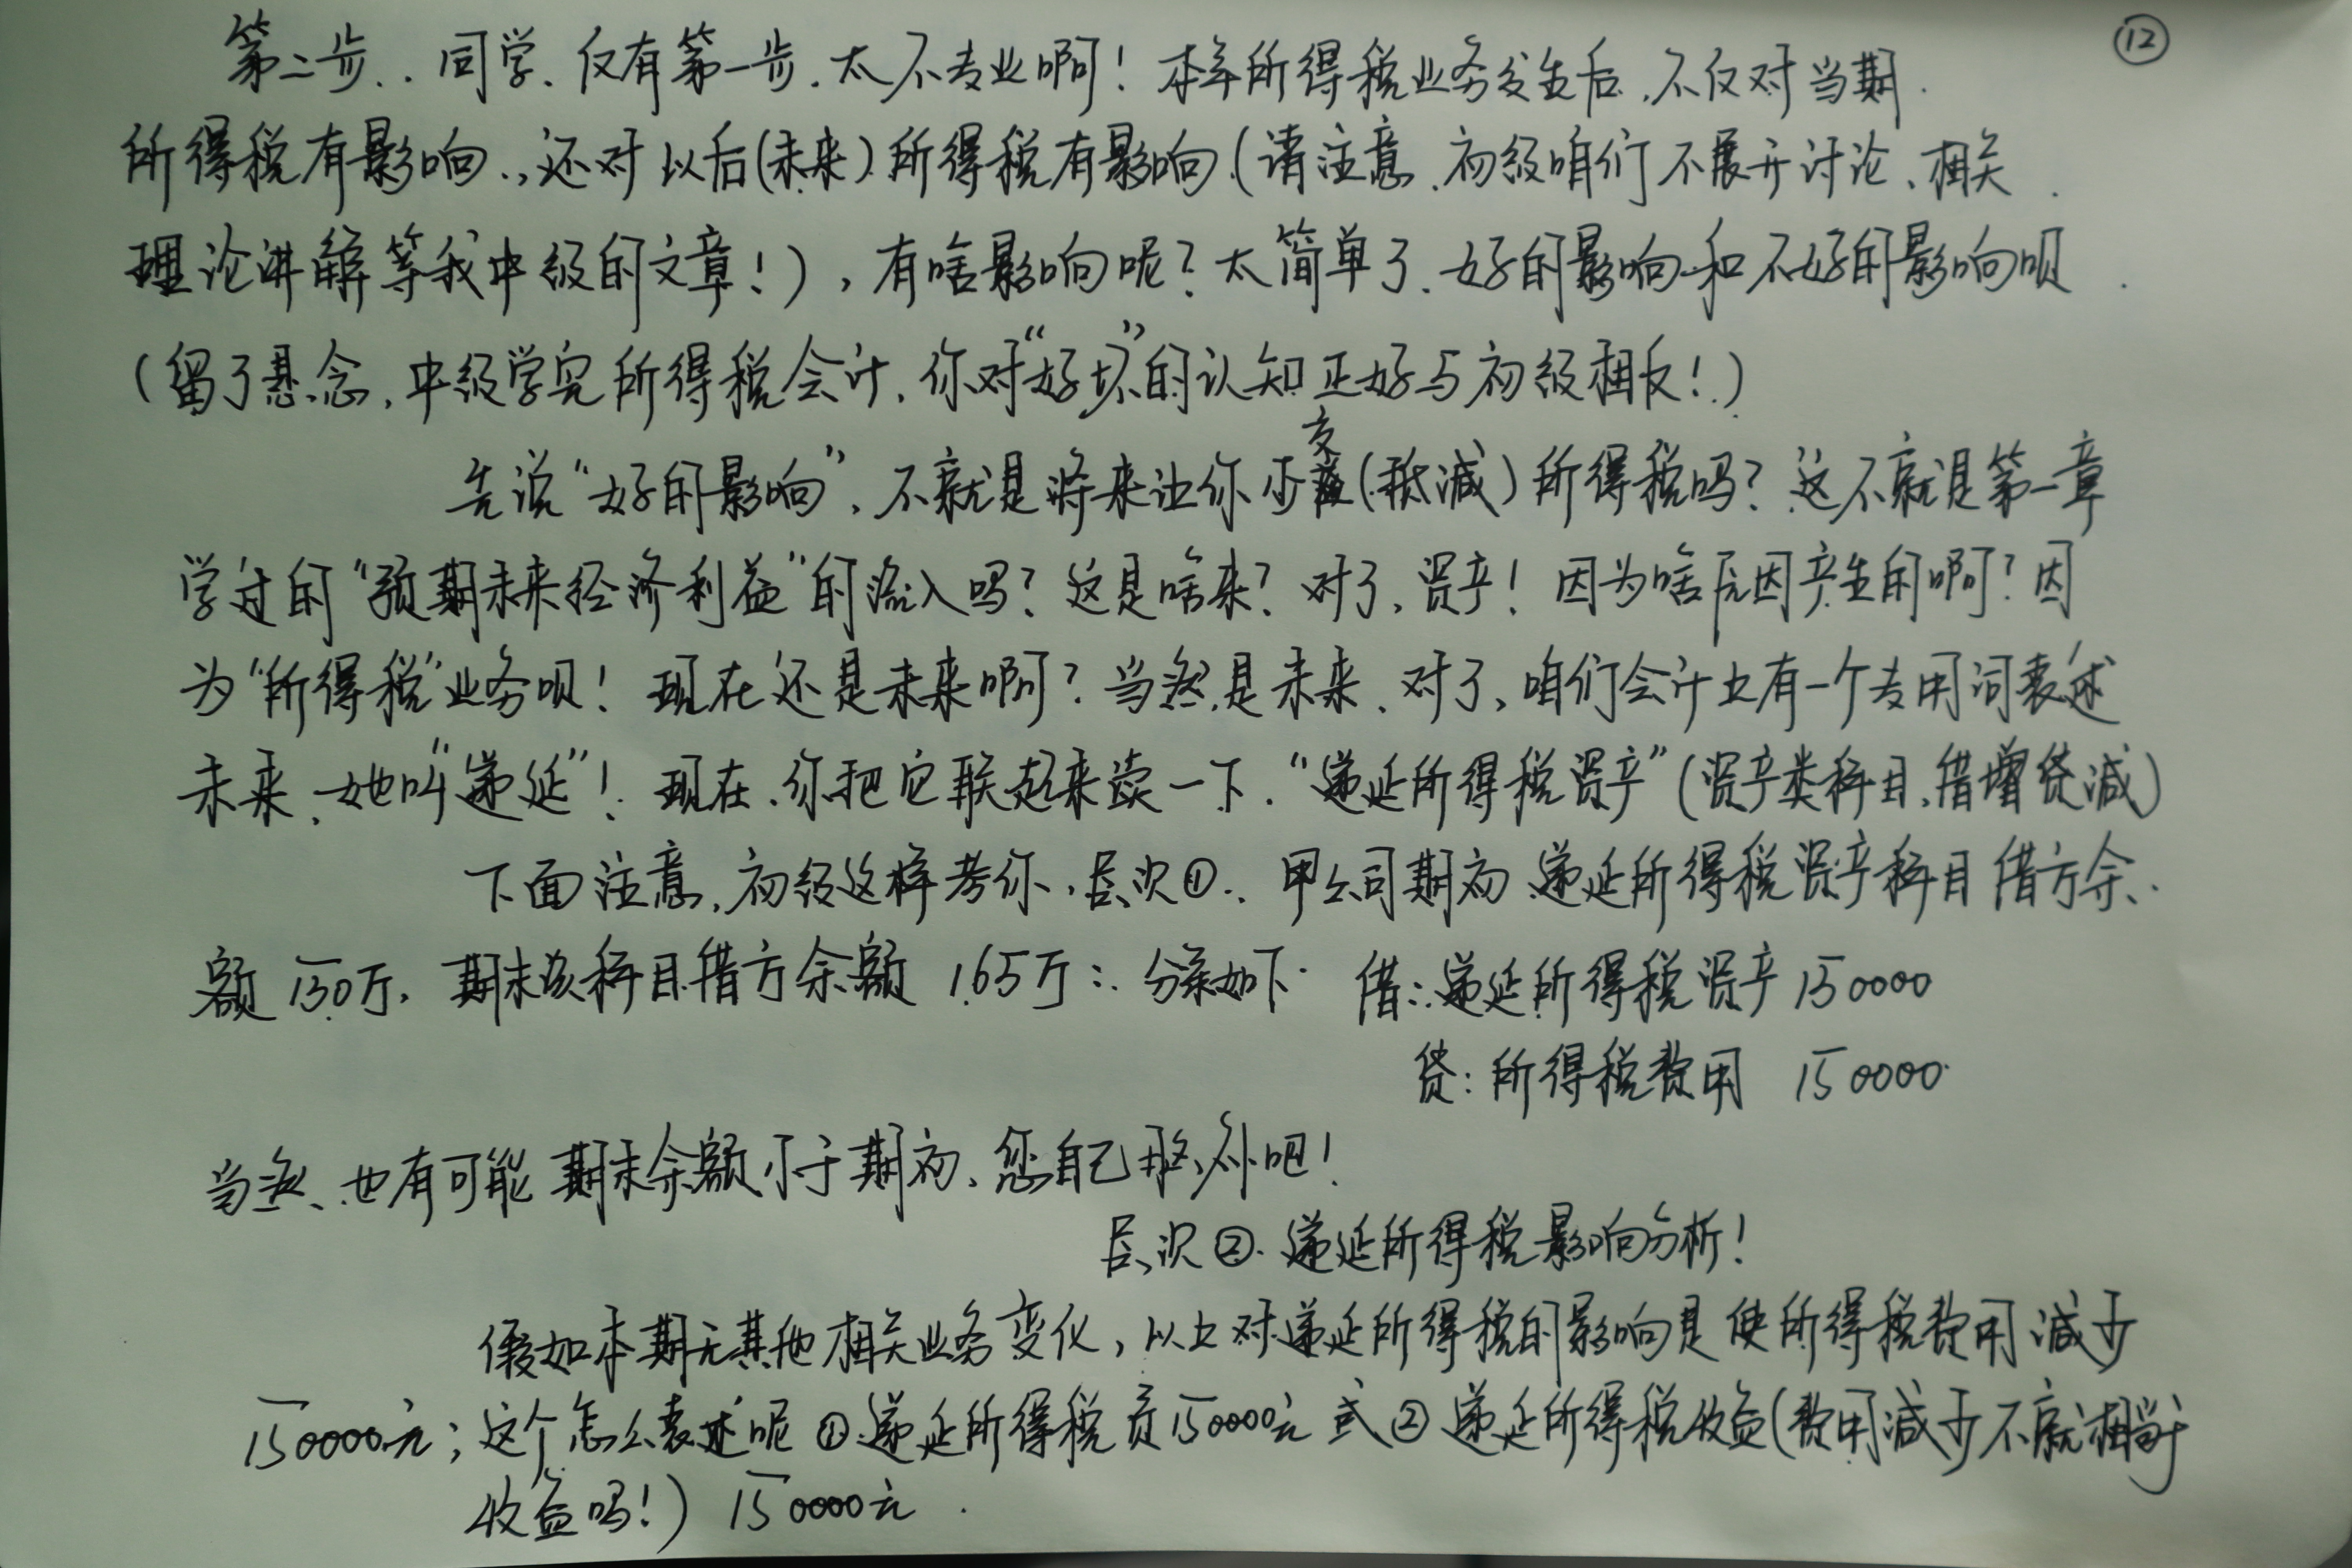 ⑫
第二步..同学、仅有第一步.太不专业啊！本年所得税业务发生后,不仅对当期
所得税有影响.,还对以后(未来)所得税有影响(请注意、初级咱们不展开讨论、相关
理论讲解等我中级的文章！),有啥影响呢？太简单了.好的影响和不好的影响呗
(留了悬念,中级学完所得税会计,你对“好坏”的认知正好与初级相反！)
先说“好的影响”,不就是将来让你少交(抵减)所得税吗？这不就是第一章
学过的“预期未来经济利益”的流入吗？这是啥来？对了,资产！因为啥原因产生的啊？因
为“所得税”业务呗！现在还是未来啊？当然是未来、对了,咱们会计上有一个专用词表述
未来、她叫“递延”！现在、你把它联起来读一下.“递延所得税资产”(资产类科目,借增贷减)
下面注意,初级这样考你,层次①.甲公司期初递延所得税资产科目借方余
额150万,期末该科目借方余额165万:分录如下 借:递延所得税资产150000
贷:所得税费用 150000
当然、也有可能期末余额小于期初、您自己脑补吧！
层次②.递延所得税影响分析！
假如本期无其他相关业务变化,以上对递延所得税的影响是使所得税费用减少
150000元;这个怎么表述呢①递延所得税负150000元或②递延所得税收益(费用减少不就相当于
收益吗！)150000元.